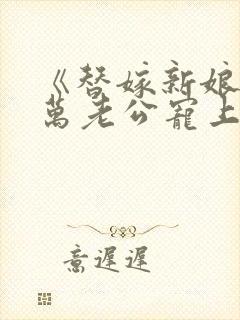 《替嫁新娘
萬老公寵上
意遲遲